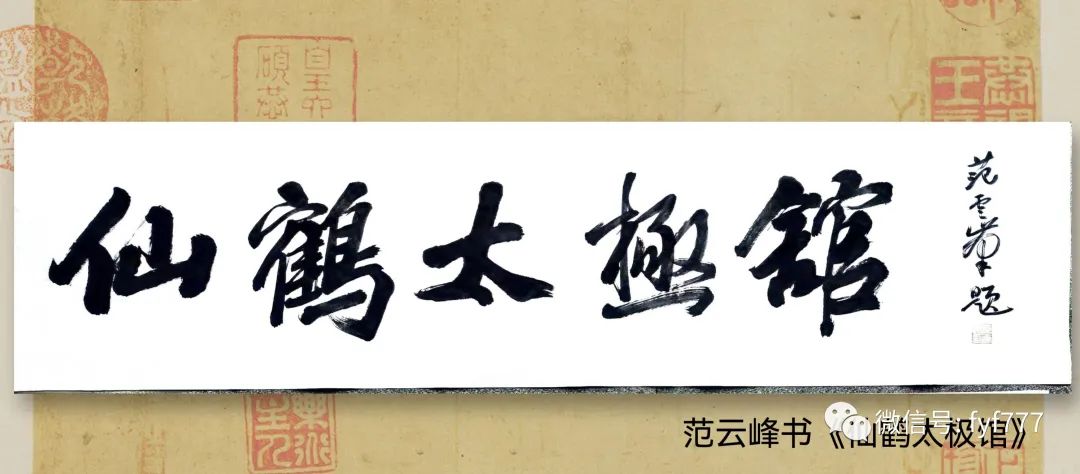 仙鶴太極舘
范雲峯題
微信号: fyf777
范云峰书《仙鹤太极馆》